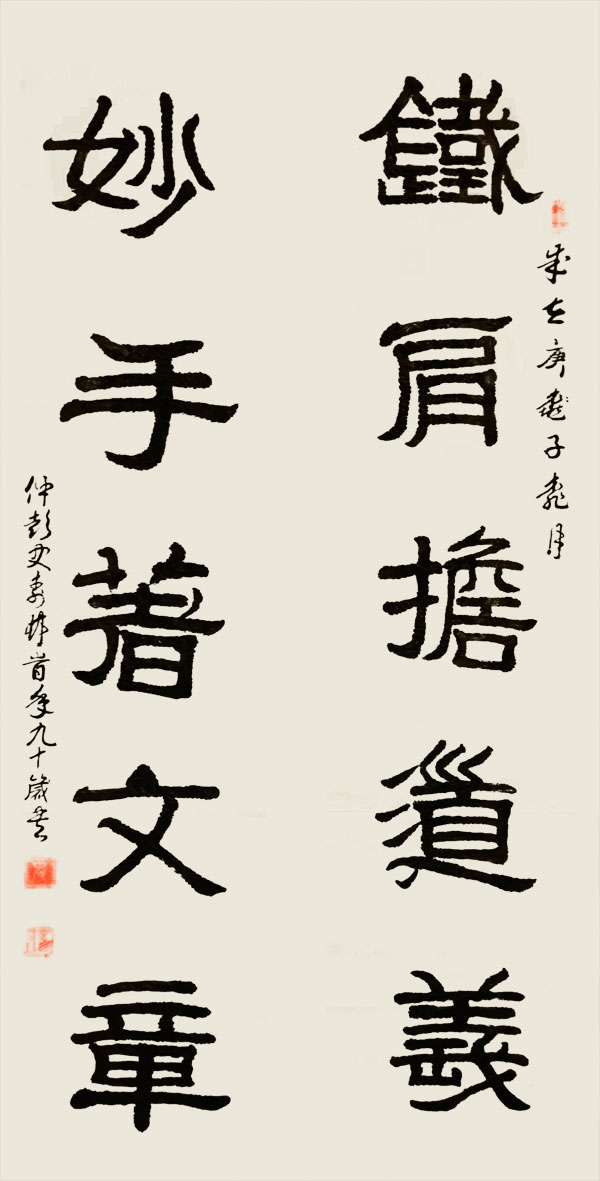 鐵肩擔道義
歲在庚
子
妙手著文章
仲彭
首年九十歲書